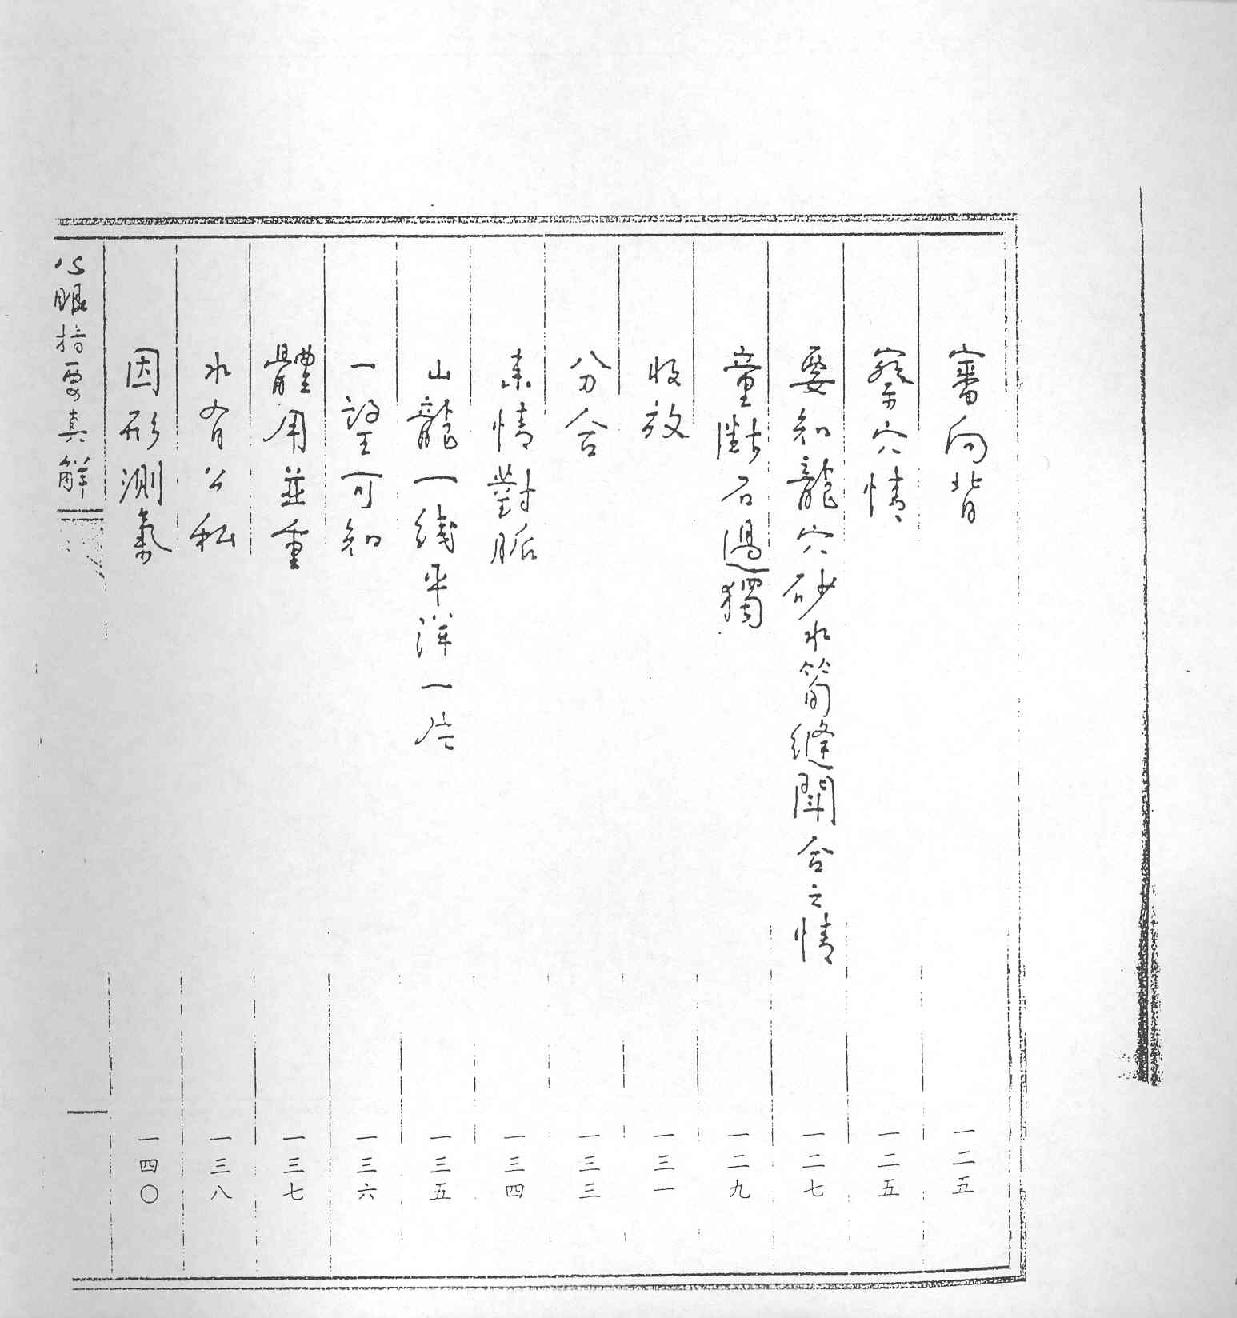 審向背 一二五
察穴情 一二五
要知龍穴砂水筋縫開合之情 一二七
童斷石過獨 一二九
收放 一三一
分合 一三三
來情對脈 一三四
山龍一綫平洋一片 一三五
一望可知 一三六
體用並重 一三七
水有公私 一三八
因形測氣 一四〇
心眼指要真解